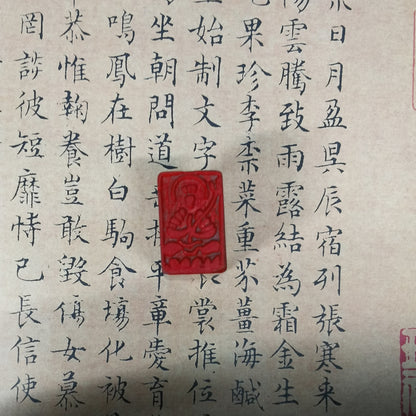 日月盈昃辰宿列張寒來
雲騰致雨露結為霜金生
果珍李柰菜重芥薑海鹹
始制文字裳推位
坐朝問道平章愛育
鳴鳳在樹白駒食場化被
恭惟鞠養豈敢毀傷女慕
罔談彼短靡恃己長信使